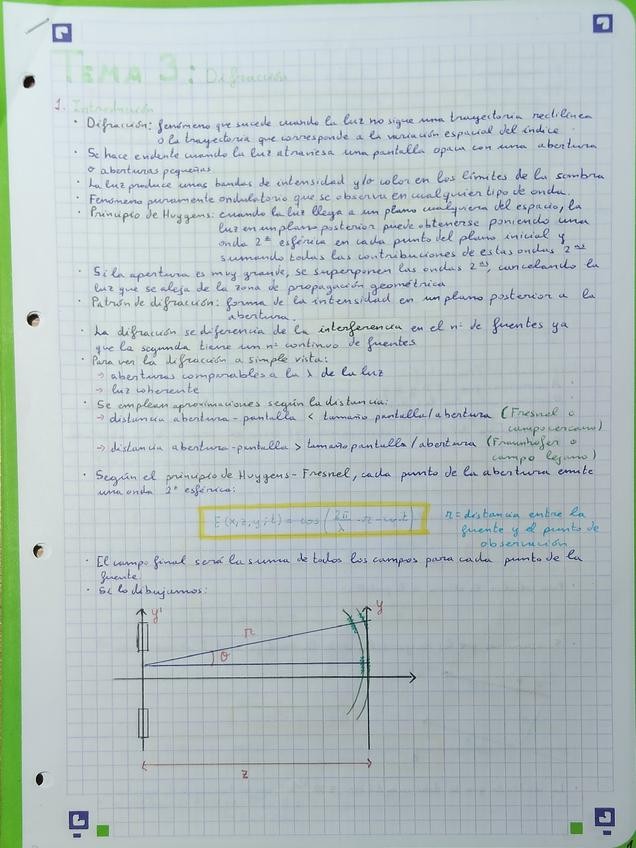 TEMA 3: Difracción
1. Introducción
· Difracción: fenómeno que sucede cuando la luz no sigue una trayectoria rectilínea
o la trayectoria que corresponde a la variación espacial del índice.
· Se hace evidente cuando la luz atraviesa una pantalla opaca con una abertura
o aberturas pequeñas.
· La luz produce unas bandas de intensidad y/o color en los límites de la sombra
· Fenómeno puramente ondulatorio que se observa en cualquier tipo de onda.
· Principio de Huygens: cuando la luz llega a un plano cualquiera del espacio, la
luz en un plano posterior puede obtenerse poniendo una
onda 2ª esférica en cada punto del plano inicial y
sumando todas las contribuciones de estas ondas 2ªs
· Si la apertura es muy grande, se superponen las ondas 2ªs, cancelando la
luz que se aleja de la zona de propagación geométrica
· Patrón de difracción: forma de la intensidad en un plano posterior a la
abertura.
· La difracción se diferencia de la interferencia en el nº de fuentes ya
que la segunda tiene un nº continuo de fuentes
· Para ver la difracción a simple vista:
→ aberturas comparables a la λ de la luz
→ luz coherente
· Se emplean aproximaciones según la distancia:
→ distancia abertura-pantalla < tamaño pantalla/abertura (Fresnel o
campo cercano)
→ distancia abertura-pantalla > tamaño pantalla/abertura (Fraunhofer o
campo lejano)
· Según el principio de Huygens-Fresnel, cada punto de la abertura emite
una onda 2ª esférica:
E(x,z,y;t) = cos (2π/λ · r - ωt)
r = distancia entre la
fuente y el punto de
observación
· El campo final será la suma de todos los campos para cada punto de la
fuente.
· Si lo dibujamos:
y'
y
r
θ
z